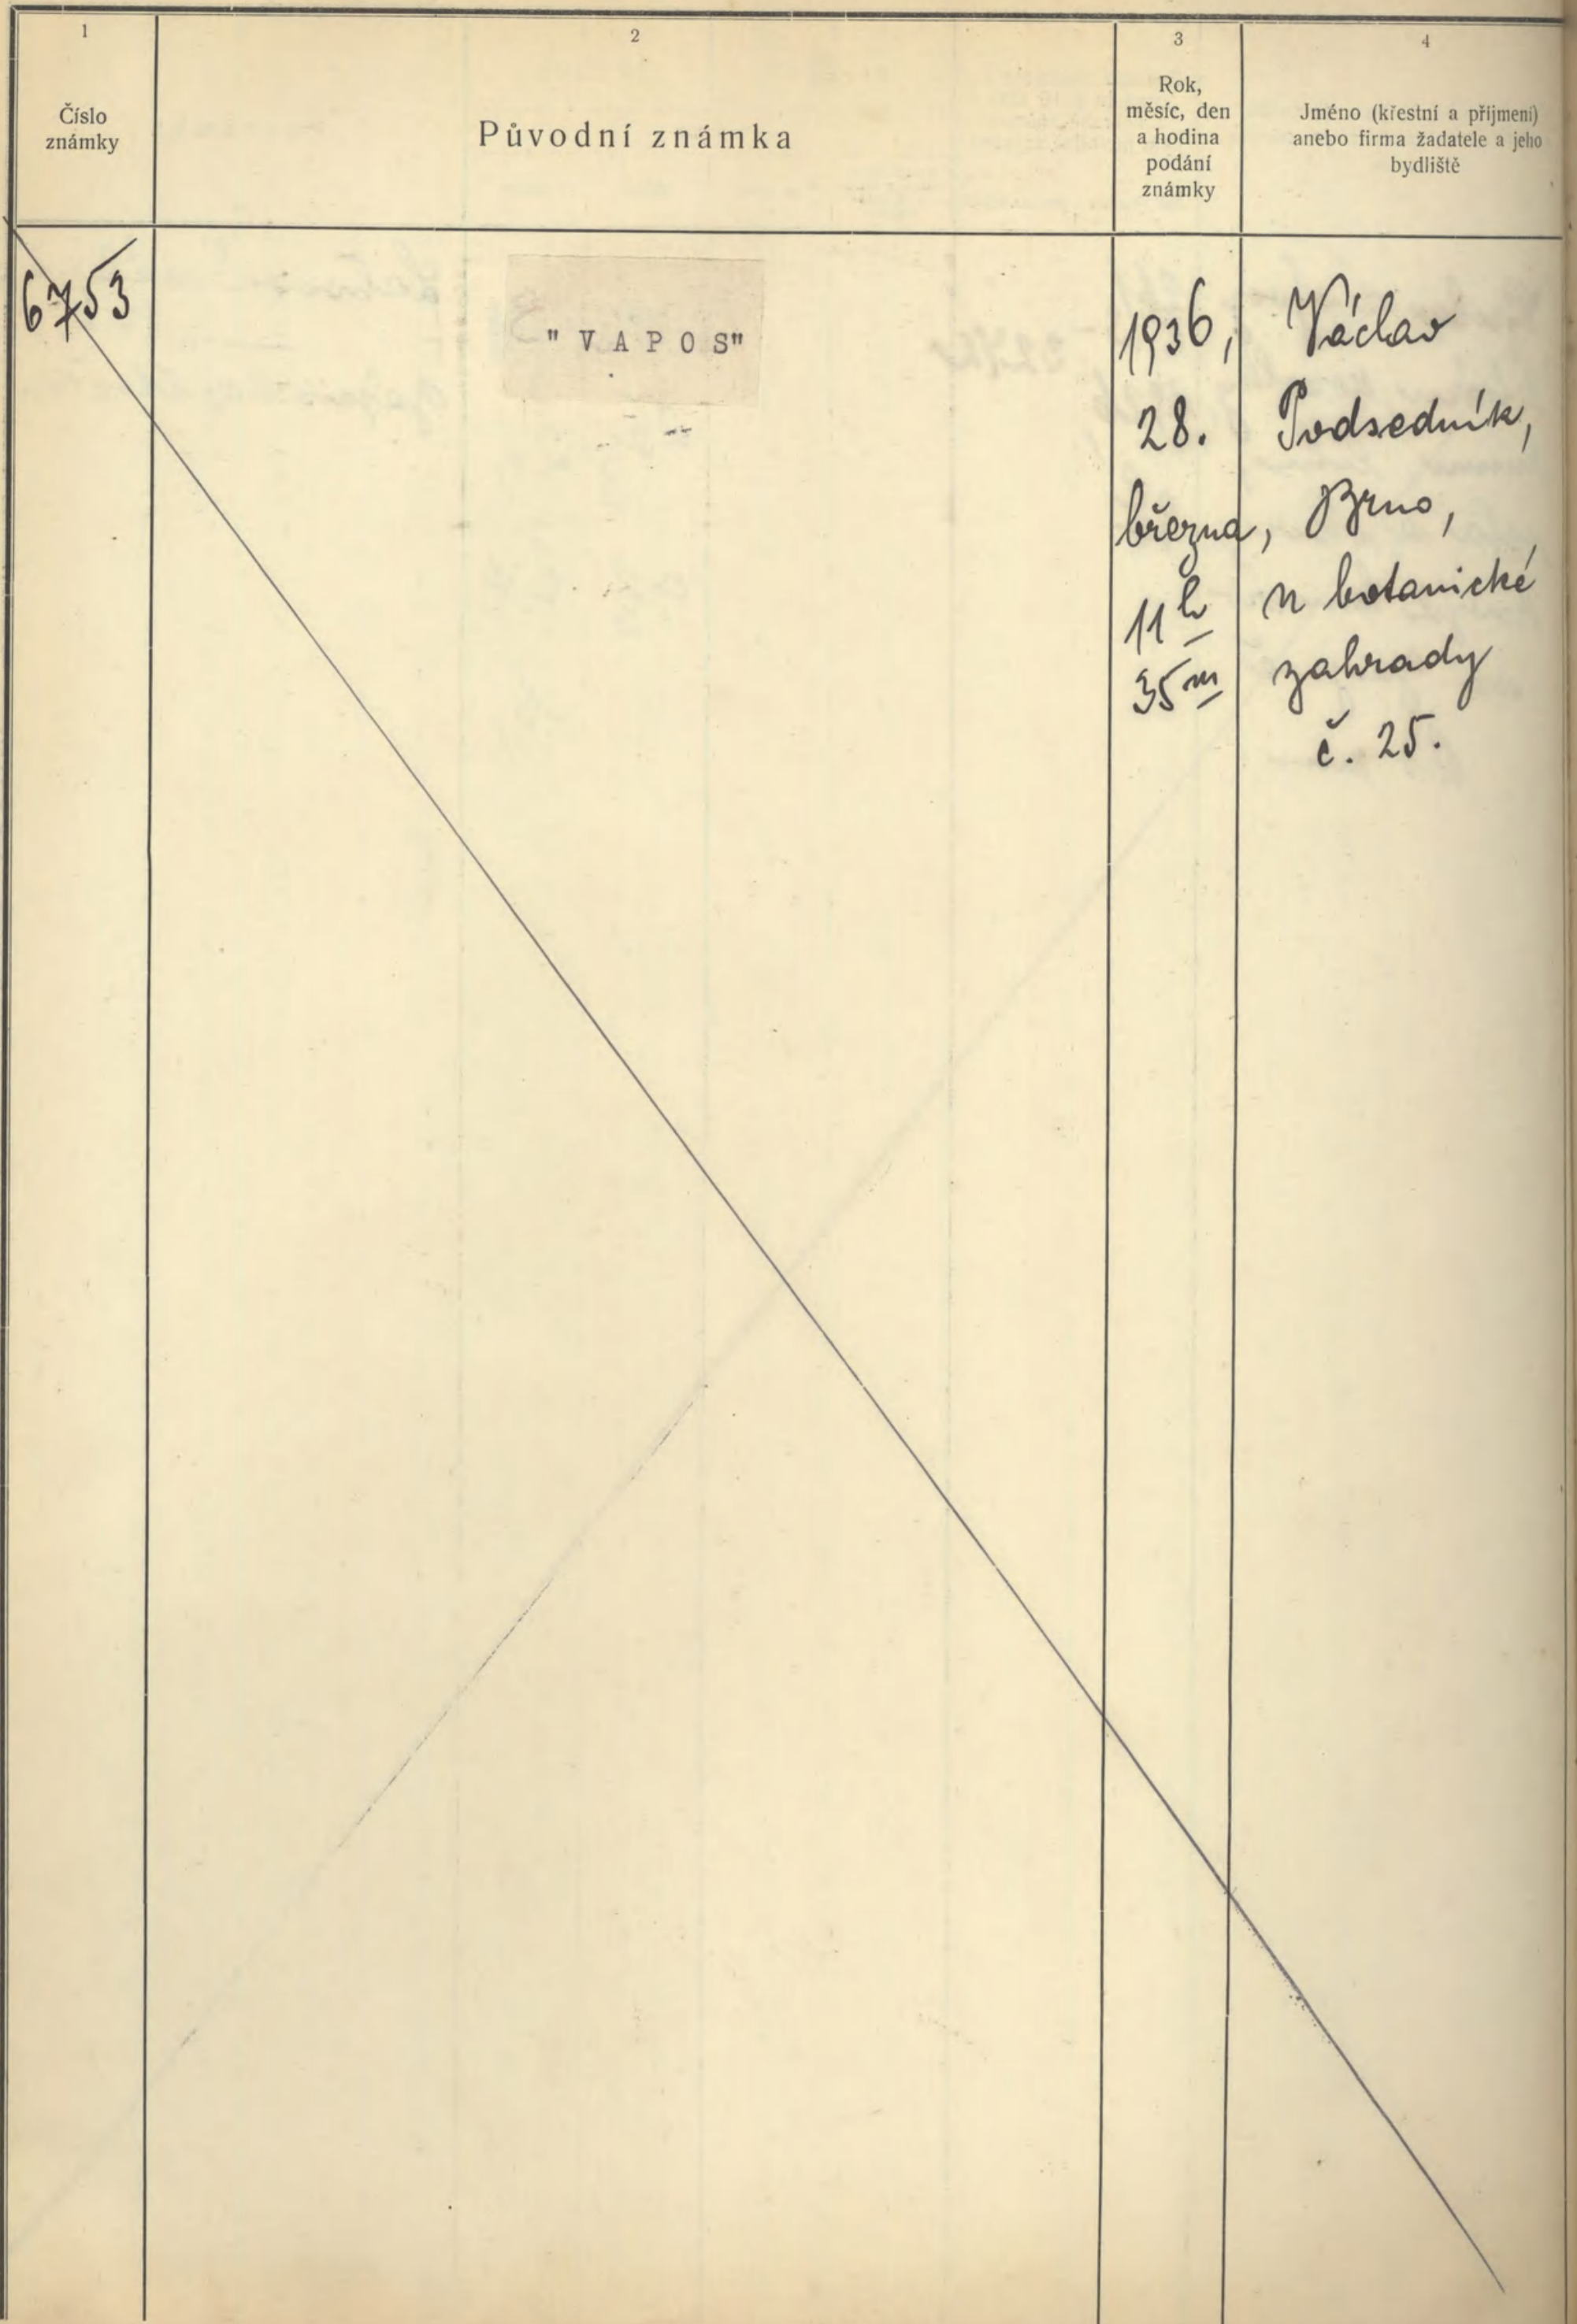 1
Číslo
známky
2
Původní známka
3
Rok,
měsíc, den
a hodina
podání
známky
4
Jméno (křestní a příjmení)
anebo firma žadatele a jeho
bydliště
6753
"VAPOS"
1936,
28.
března,
11h
35m
Václav
Podsedník,
Brno,
u botanické
zahrady
č. 25.